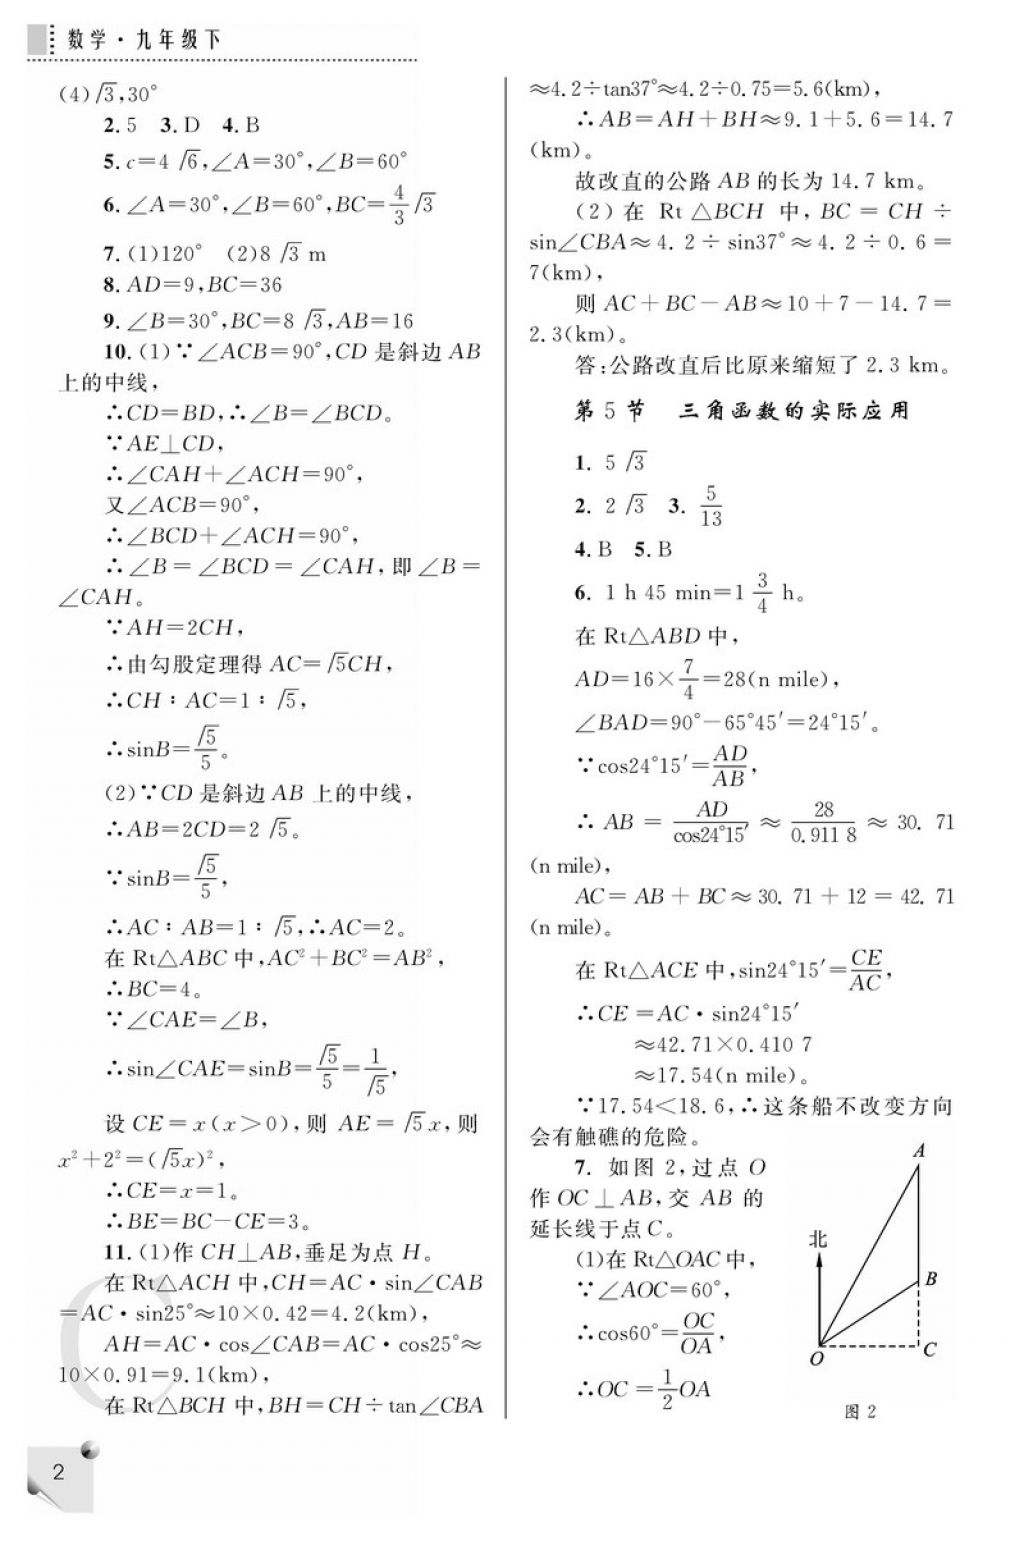 数学·九年级下
(4)√3,30°
2.5 3.D 4.B
5.c=4√6,∠A=30°,∠B=60°
6.∠A=30°,∠B=60°,BC=4/3√3
7.(1)120° (2)8√3 m
8.AD=9,BC=36
9.∠B=30°,BC=8√3,AB=16
10.(1)∵∠ACB=90°,CD是斜边AB
上的中线,
∴CD=BD,∴∠B=∠BCD。
∵AE⊥CD,
∴∠CAH+∠ACH=90°,
又∠ACB=90°,
∴∠BCD+∠ACH=90°,
∴∠B=∠BCD=∠CAH,即∠B=
∠CAH。
∵AH=2CH,
∴由勾股定理得AC=√5CH,
∴CH∶AC=1∶√5,
∴sinB=√5/5。
(2)∵CD是斜边AB上的中线,
∴AB=2CD=2√5。
∵sinB=√5/5,
∴AC∶AB=1∶√5,∴AC=2。
在Rt△ABC中,AC²+BC²=AB²,
∴BC=4。
∵∠CAE=∠B,
∴sin∠CAE=sinB=√5/5=1/√5,
设CE=x(x>0),则AE=√5x,则
x²+2²=(√5x)²,
∴CE=x=1。
∴BE=BC-CE=3。
11.(1)作CH⊥AB,垂足为点H。
在Rt△ACH中,CH=AC·sin∠CAB
=AC·sin25°≈10×0.42=4.2(km),
AH=AC·cos∠CAB=AC·cos25°≈
10×0.91=9.1(km),
在Rt△BCH中,BH=CH÷tan∠CBA
≈4.2÷tan37°≈4.2÷0.75=5.6(km),
∴AB=AH+BH≈9.1+5.6=14.7
(km)。
故改直的公路AB的长为14.7 km。
(2)在Rt△BCH中,BC=CH÷
sin∠CBA≈4.2÷sin37°≈4.2÷0.6=
7(km),
则AC+BC-AB≈10+7-14.7=
2.3(km)。
答:公路改直后比原来缩短了2.3 km。
第5节 三角函数的实际应用
1. 5√3
2. 2√3 3. 5/13
4.B 5.B
6. 1 h 45 min=1 3/4 h。
在Rt△ABD中,
AD=16×7/4=28(n mile),
∠BAD=90°-65°45′=24°15′。
∵cos24°15′=AD/AB,
∴AB=AD/cos24°15′≈28/0.911 8≈30.71
(n mile),
AC=AB+BC≈30.71+12=42.71
(n mile)。
在Rt△ACE中,sin24°15′=CE/AC,
∴CE=AC·sin24°15′
≈42.71×0.410 7
≈17.54(n mile)。
∵17.54<18.6,∴这条船不改变方向
会有触礁的危险。
7. 如图2,过点O
作OC⊥AB,交AB的
延长线于点C。
(1)在Rt△OAC中,
∵∠AOC=60°,
∴cos60°=OC/OA,
∴OC=1/2OA
A
北
B
O
C
图2
2